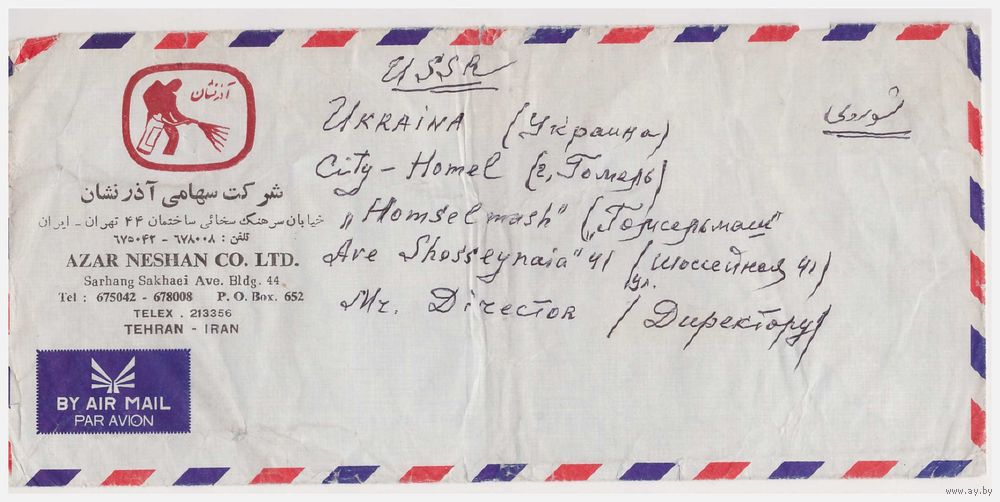 آذرنشان
شرکت سهامی آذرنشان
خیابان سرهنگ سخائی ساختمان ۴۴ تهران - ایران
تلفن : ۶۷۸۰۰۸ - ۶۷۵۰۴۲
AZAR NESHAN CO. LTD.
Sarhang Sakhaei Ave. Bldg. 44
Tel : 675042 - 678008 P. O. Box. 652
TELEX . 213356
TEHRAN - IRAN
BY AIR MAIL
PAR AVION
USSR
شوروی
UKRAINA (Украина)
City - Homel (г. Гомель)
„Homselmash" („Гомсельмаш"
Ave Shosseynaia" 41 (ул. Шоссейная 41)
Mr. Director (Директору)
www.ay.by